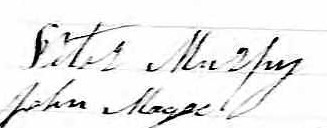 Peter Murphy
John Magee